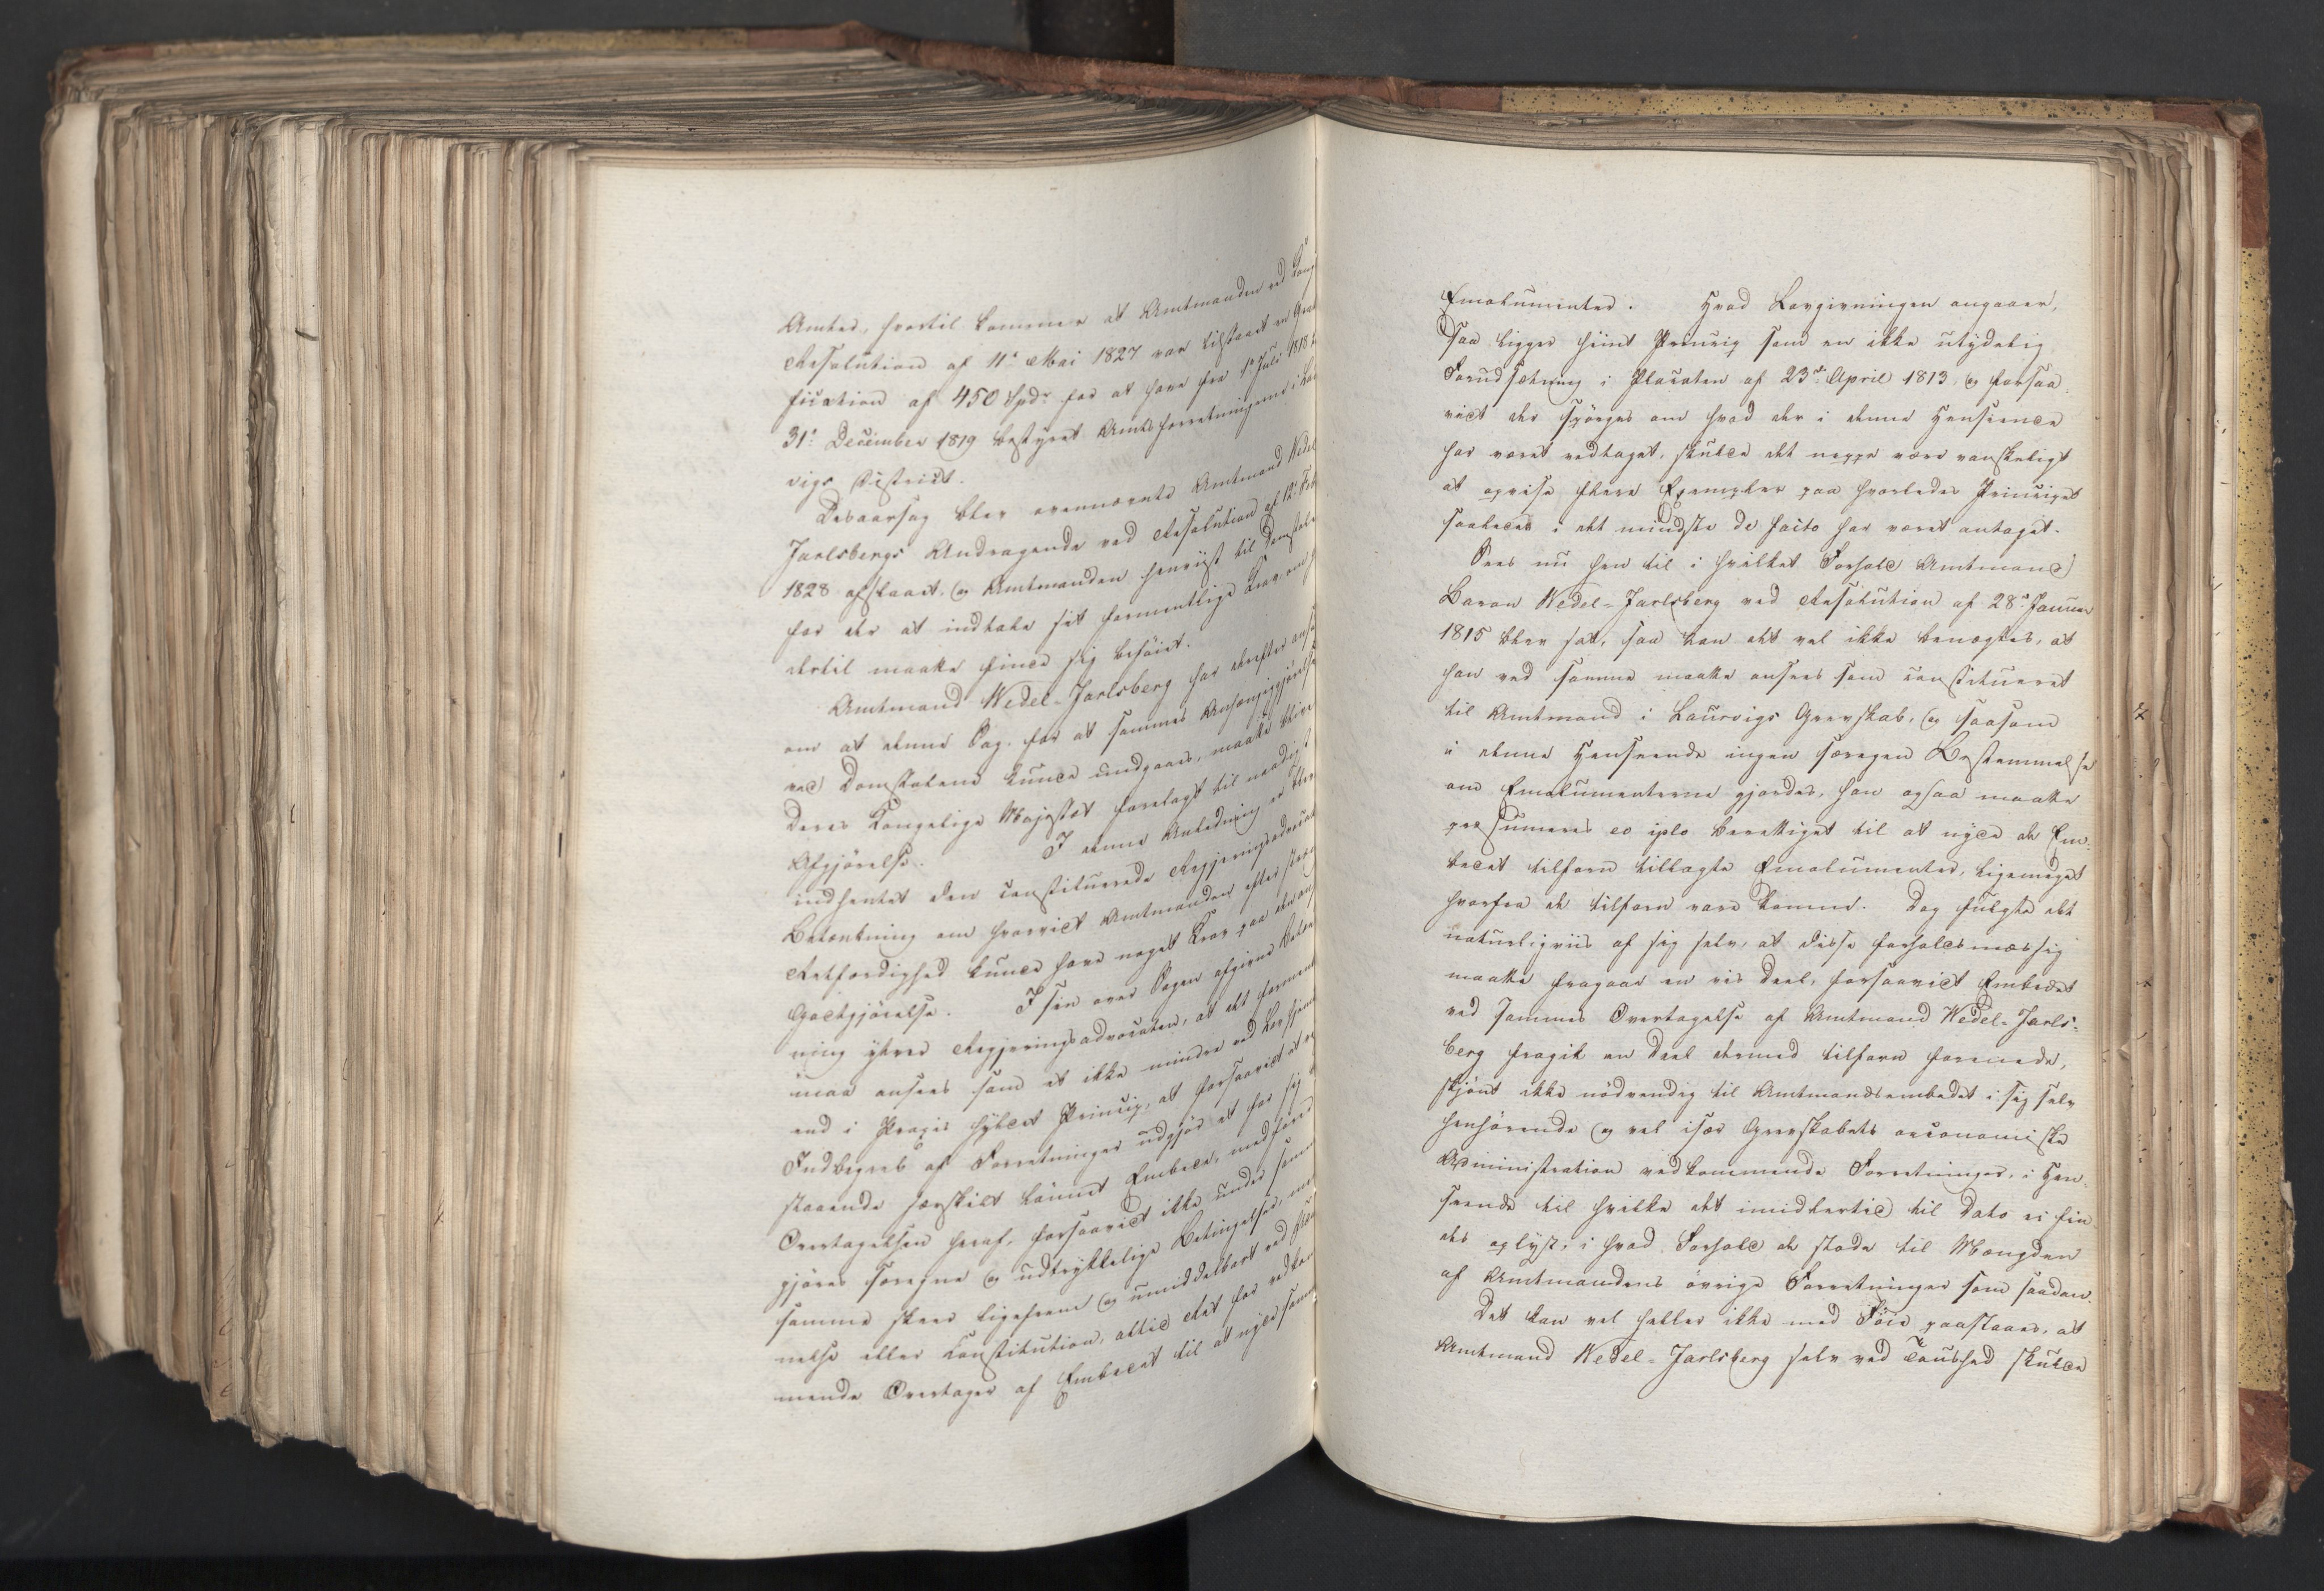 Amtes, hvortil kommer at Amtmanden ved Kong
Resolution af 11te Mai 1827 var tilstaaet en Grati
fication af 450 Spdr for at have fra 1ste Juli 1818 t
31te December 1819 bestyret Amtsforretningerne i Lau
vigs District.
Desaarsag blev ovennævnte Amtmand Wedel
Jarlsbergs Andragende ved Resolution af 12te Feb
1828 afslaaet, og Amtmanden henviist til Domstole
for der at indtale sit formentlige Krav, om
dertil maatte finde sig beføiet.
Amtmand Wedel-Jarlsberg har derefter ansø
om at denne Sag, for at sammes Anhængiggjørelse
ved Domstolene kunde undgaaes, maatte blive
Deres Kongelige Majestæt forelagt til naadigst
Afgjørelse. I denne Anledning er blev
indhentet den constituerede Regjeringsadvocats
Betænkning om hvorvidt Amtmanden efter stræng
Retfærdighed kunde have noget Krav paa den ansø
Godtgjørelse. I sin over Sagen afgivne Betænk
ning yttrer Regjeringsadvocaten, at det forment
maa ansees som et ikke mindre ved Lov hjemlet
end i Praxis hyldet Princip, at forsaavidt et
Indbegreb af Forretninger udgjør et for sig
staaende særskilt lønnet Embede, medfører
Overtagelsen heraf, forsaavidt ikke under samme
gjøres særegne og udtrykkelige Betingelser, men
samme skeer ligefrem og umiddelbart ved
nelse eller Constitution, altid Ret for vedkom
mende Overtager af Embedet til at nyde samme
Emolumenter. Hvad Lovgivningen angaaer,
saa ligger hiint Princip som en ikke utydelig
Forudsætning i Placaten af 23de April 1813, og forsaa
vidt der spørges om hvad der i denne Henseende
har været vedtaget, skulde det neppe være vanskeligt
at opvise flere Exempler paa hvorledes Principet
saaledes i det mindste de facto har været antaget.
Sees nu hen til i hvilket Forhold Amtmand
Baron Wedel-Jarlsberg ved Resolution af 28de Januar
1815 blev sat, saa kan det vel ikke benægtes, at
han ved samme maatte ansees som constitueret
til Amtmand i Laurvigs Grevskab, og saasom
i denne Henseende ingen særegen Bestemmelse
om Emolumenterne gjordes, han ogsaa maatte
præsumeres eo ipso berettiget til at nyde de Em-
bedet tilforn tillagte Emolumenter, ligemeget
hvorfra de tilforn vare komne. Dog fulgte det
naturligviis af sig selv, at disse forholdsmæssig
maatte fragaae en vis Deel, forsaavidt Embedet
ved sammes Overtagelse af Amtmand Wedel-Jarls-
berg fragik en Deel dermed tilforn forenede,
skjønt ikke nødvendig til Amtmandsembedet i sig selv
henhørende og vel især Grevskabets oeconomiske
Administration vedkommende Forretninger, i Hen-
seende til hvilke det imidlertid til Dato ei fin
des oplyst, i hvad Forhold de stode til Mængden
af Amtmandens øvrige Forretninger som saadan.
Det kan vel heller ikke med Føie paastaaes, at
Amtmand Wedel-Jarlsberg selv ved Taushed skulde